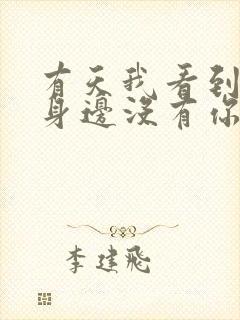 有天我看到
身邊没有你
李建飛